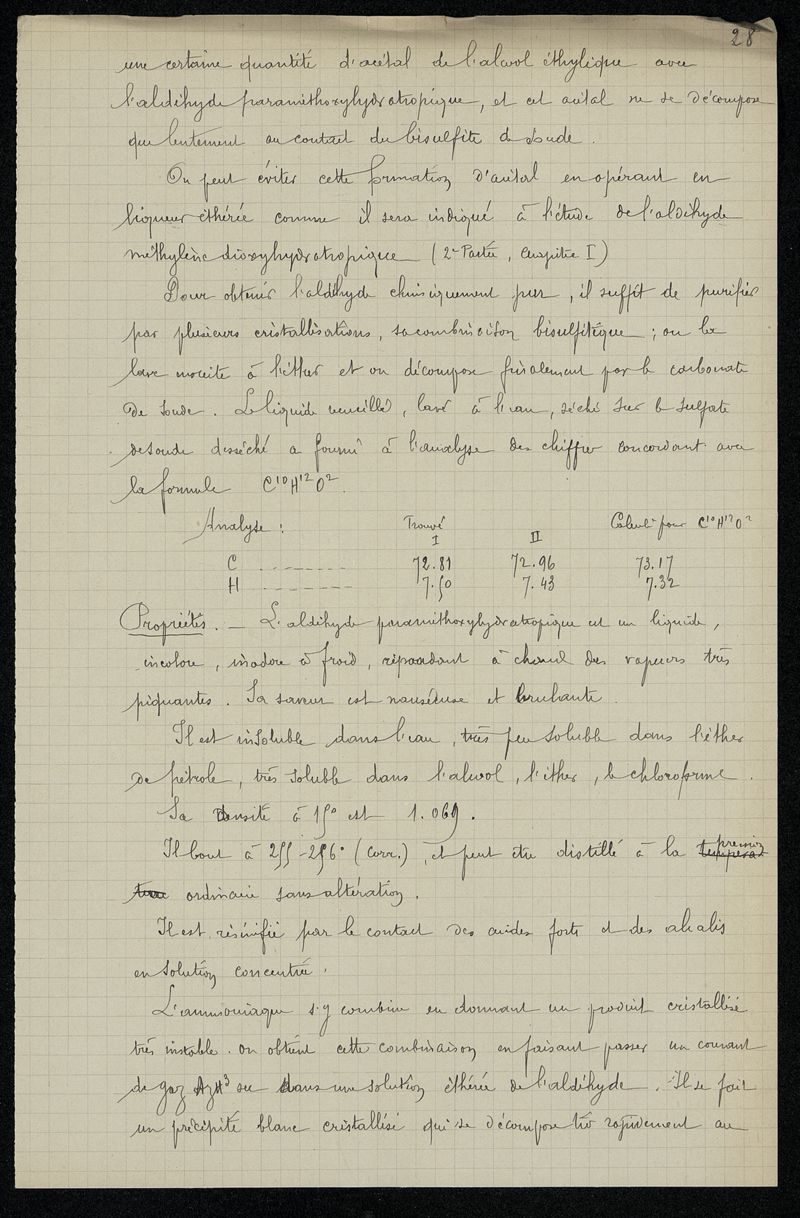 28
une certaine quantité d'acétal de l'alcool éthylique avec
l'aldéhyde paraméthoxyhydratropique, et cet acétal ne se décompose
que lentement au contact du bisulfite de soude.
On peut éviter cette formation d'acétal en opérant en
liqueur éthérée comme il sera indiqué à l'étude de l'aldéhyde
méthylène dioxyhydratropique (2e Partie, Chapitre I)
Pour obtenir l'aldéhyde chimiquement pur, il suffit de purifier
par plusieurs cristallisations, sa combinaison bisulfitique ; on la
lave ensuite à l'éther et on décompose finalement par le carbonate
de soude. Le liquide recueilli, lavé à l'eau, séché sur le sulfate
de soude desséché a fourni à l'analyse des chiffres concordant avec
la formule C¹⁰H¹²O².
Analyse : Trouvé Calculé pour C¹⁰H¹²O²
I II
C ........ 72.81 72.96 73.17
H ........ 7.50 7.43 7.32
Propriétés. — L'aldéhyde paraméthoxyhydratropique est un liquide,
incolore, inodore à froid, répandant à chaud des vapeurs très
piquantes. Sa saveur est nauséeuse et brulante.
Il est insoluble dans l'eau, très peu soluble dans l'éther
de pétrole, très soluble dans l'alcool, l'éther, le chloroforme.
Sa densité à 15° est 1.069.
Il bout à 255-256° (corr.), et peut être distillé à la tempéra pression
ture ordinaire sans altération.
Il est résinifié par le contact des acides forts et des alcalis
en solution concentrée.
L'ammoniaque s'y combine en donnant un produit cristallisé
très instable. On obtient cette combinaison en faisant passer un courant
de gaz AzH³ sec dans une solution éthérée de l'aldéhyde. Il se fait
un précipité blanc cristallisé qui se décompose très rapidement au